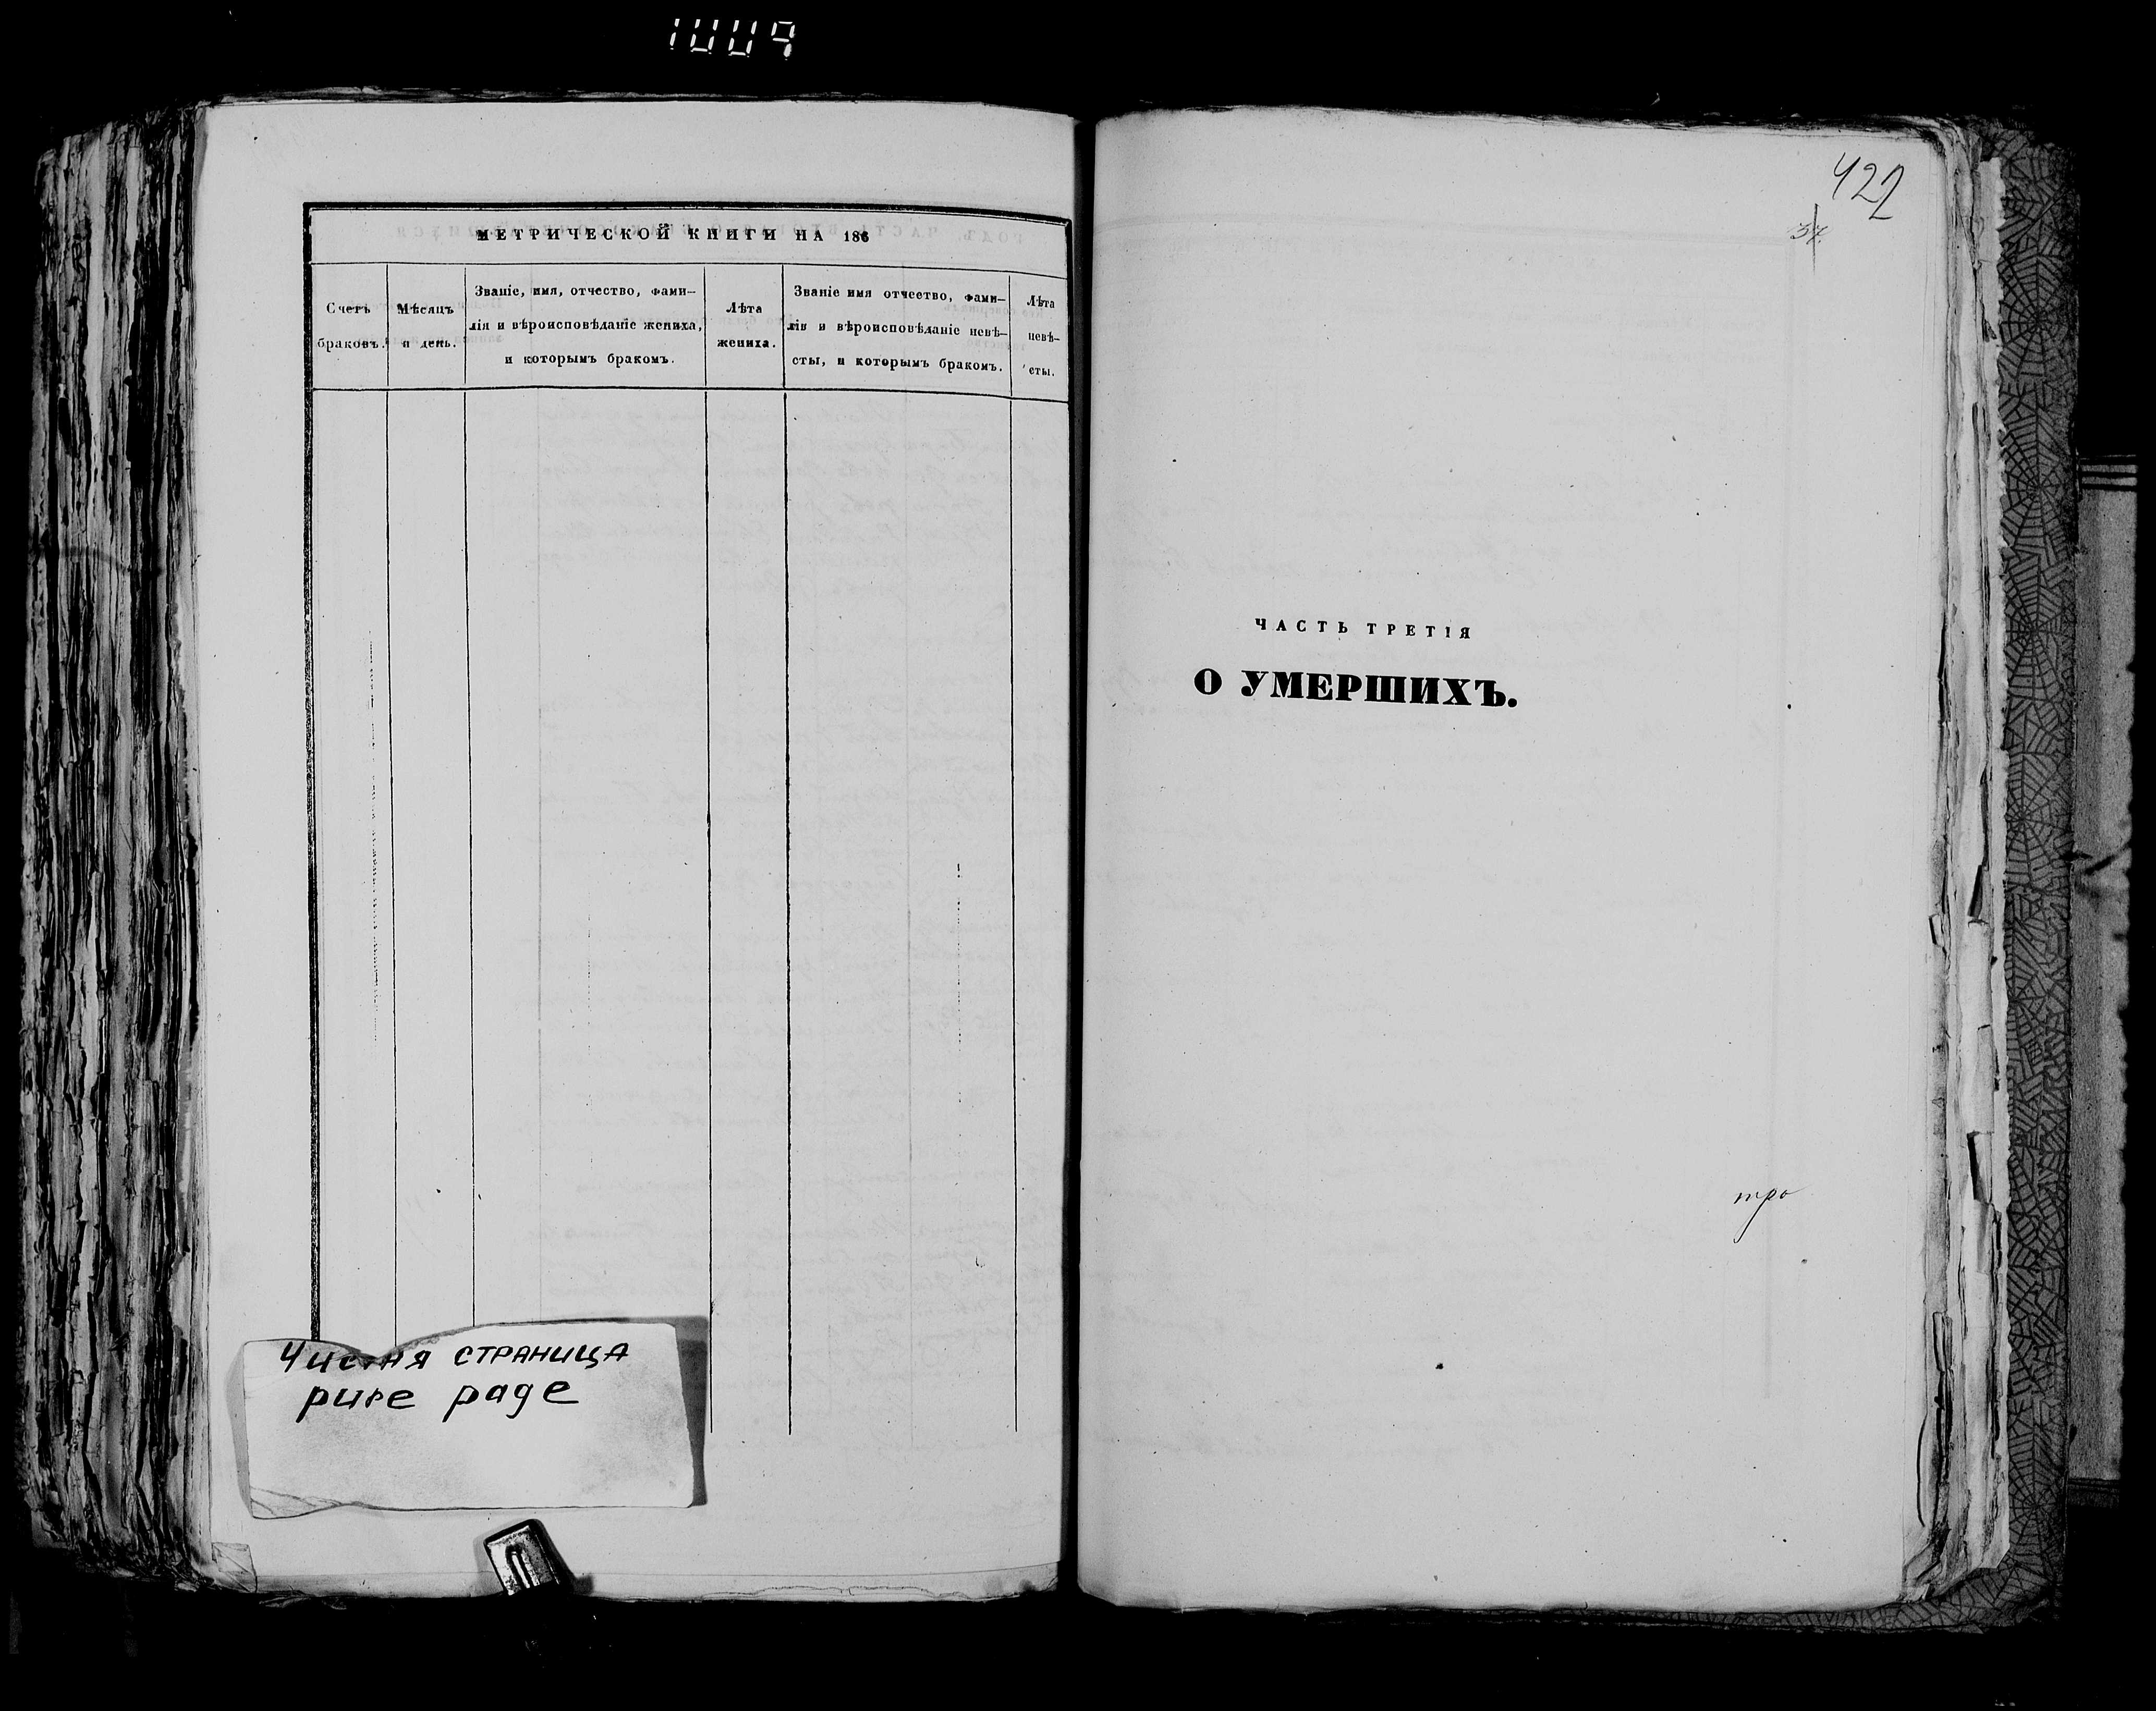 1009
МЕТРИЧЕСКОЙ КНИГИ НА 186
Счетъ
браковъ.
Мѣсяцъ
и день.
Званіе, имя, отчество, фами-
лія и вѣроисповѣданіе жениха,
и которымъ бракомъ.
Лѣта
жениха.
Званіе имя отчество, фами-
лія и вѣроисповѣданіе невѣ-
сты, и которымъ бракомъ.
Лѣта
невѣ-
сты.
Чистая страница
pure page
422
37.
ЧАСТЬ ТРЕТІЯ
О УМЕРШИХЪ.
тро